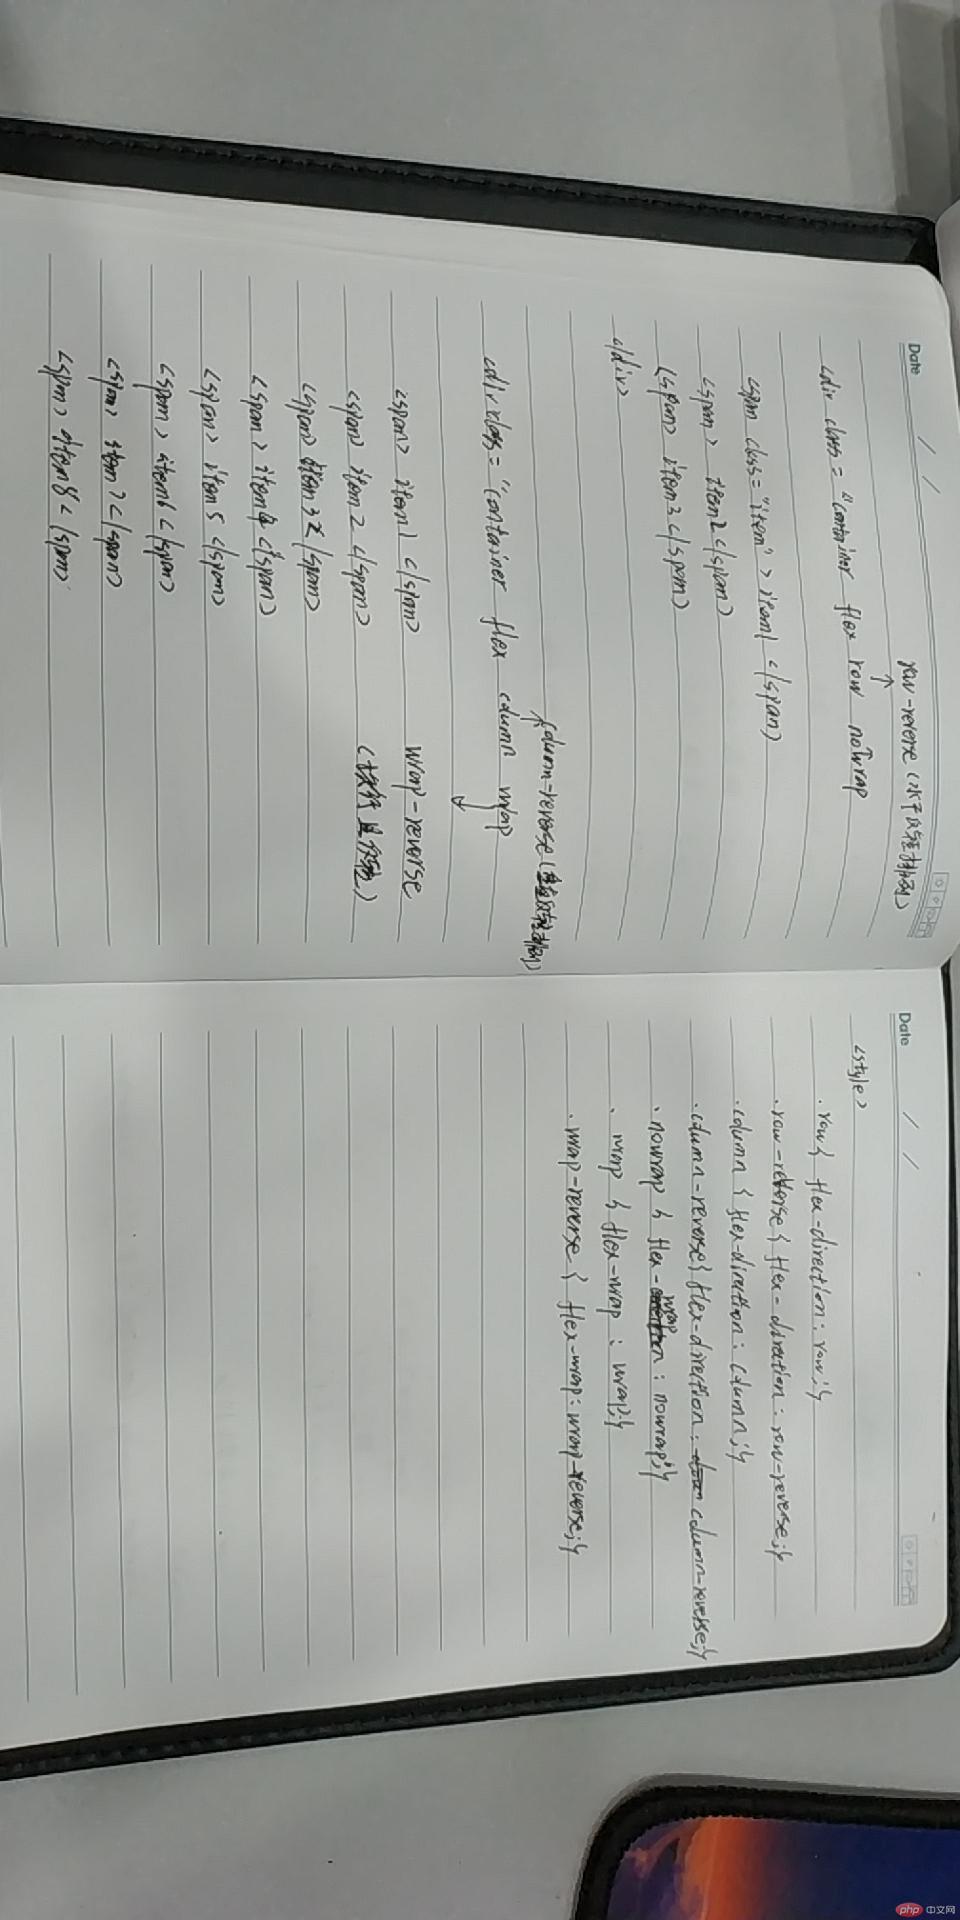 Date / /
row-reverse (水平反转排列)
↑
<div class = "container flex row nowrap
<span class = "item" > item1 </span>
<span> item2 </span>
<span> item3 </span>
</div>
column-reverse (垂直反转排列)
<div class = "container flex column wrap
<span> item1 </span> wrap-reverse
<span> item2 </span>
<span> item3 </span>
<span> item4 </span>
<span> item5 </span>
<span> item6 </span>
<span> item7 </span>
<span> item8 </span>
Date / /
<style>
.row{ flex-direction: row;}
.row-reverse{ flex-direction: row-reverse;}
.column{ flex-direction: column;}
.column-reverse{ flex-direction: column-reverse;}
.nowrap{ flex-wrap: nowrap;}
.wrap{ flex-wrap: wrap;}
.wrap-reverse{ flex-wrap: wrap-reverse;}
php 中文网